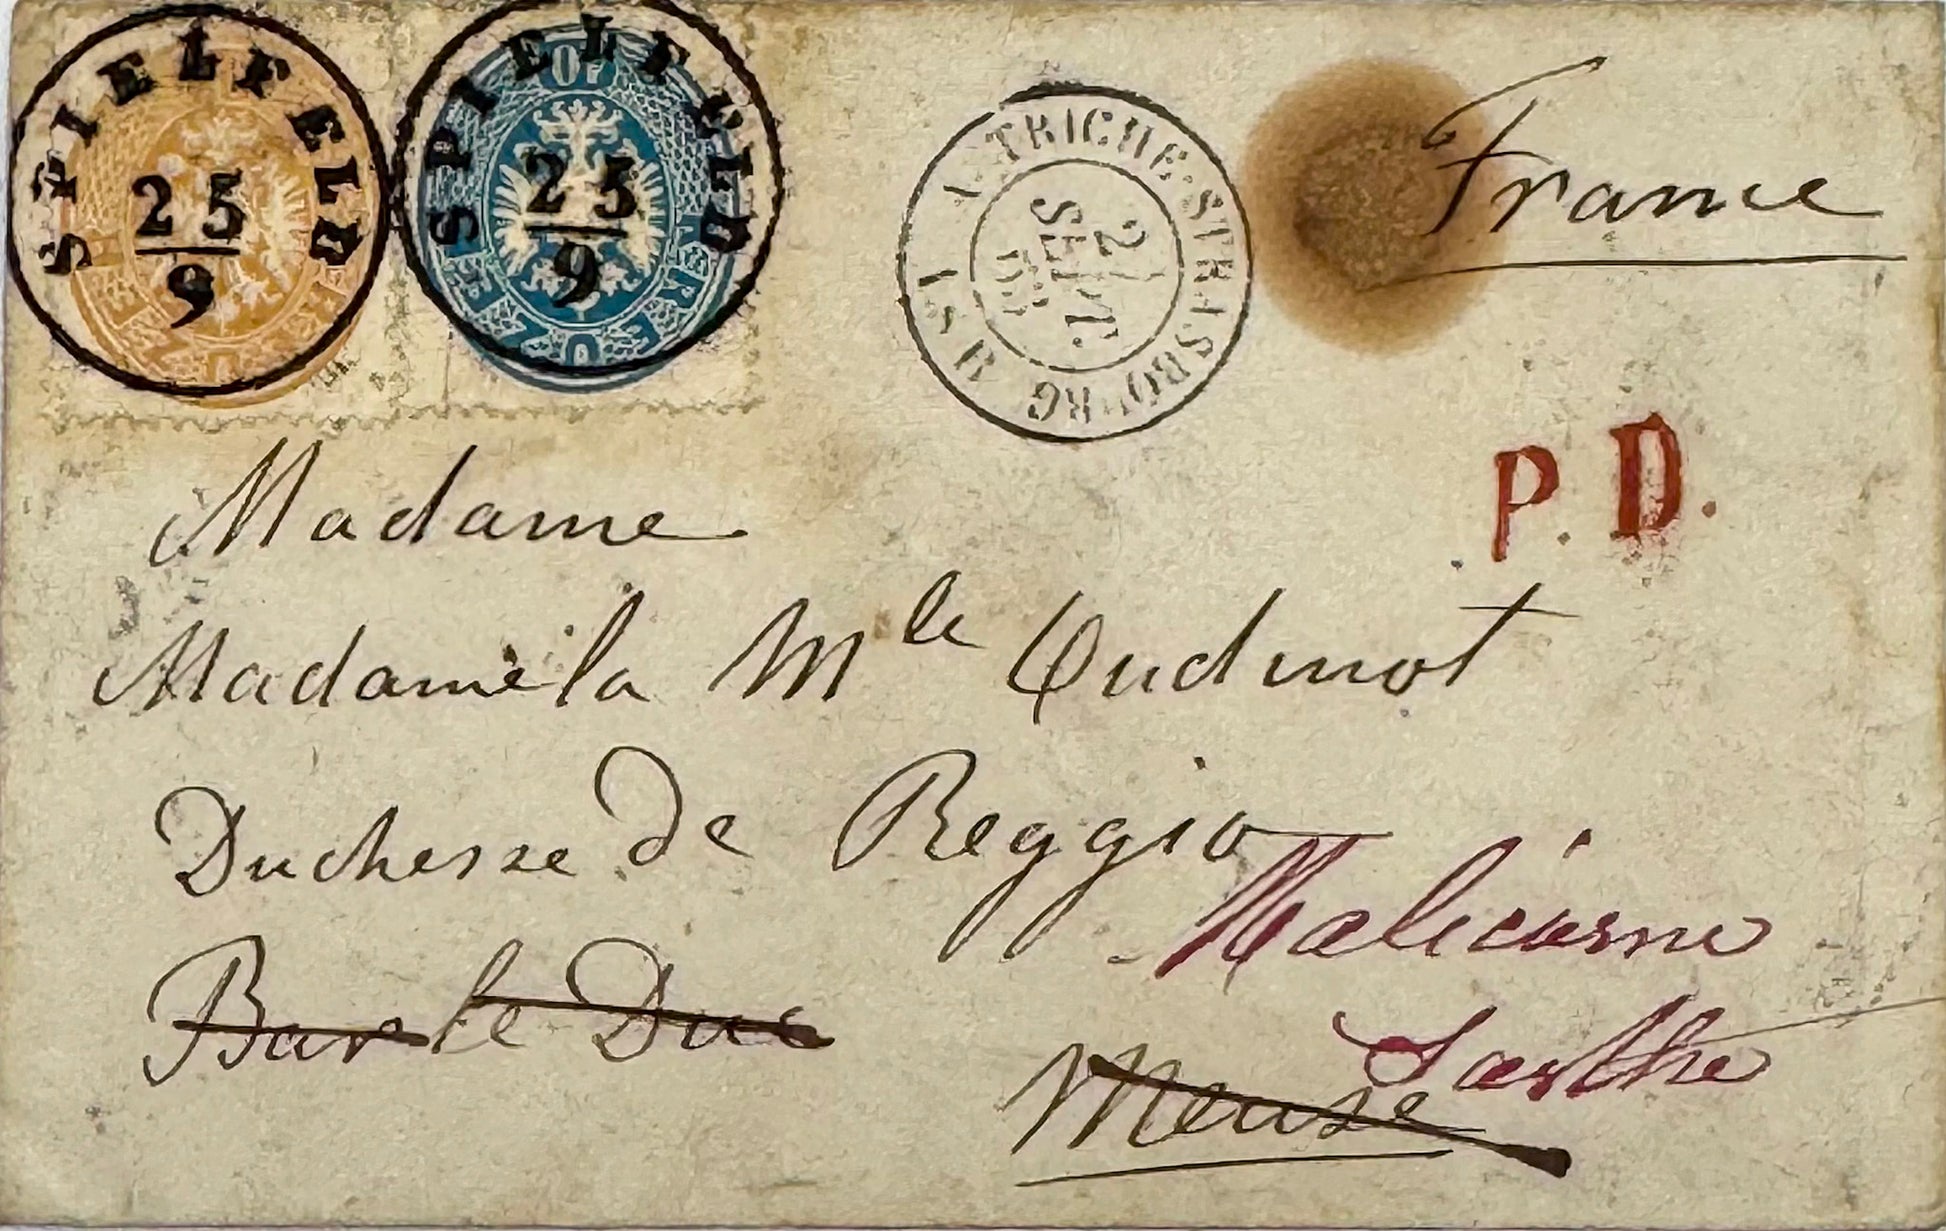 SPIELFELD
25
9
SPIELFELD
10
25
9
AUTRICHE·STRASBOURG
SEPT.
France
P.D.
Madame
Madame la Mle Oudinot
Duchesse de Reggio
Malicorne
Bar le Duc
Sarthe
Meuse